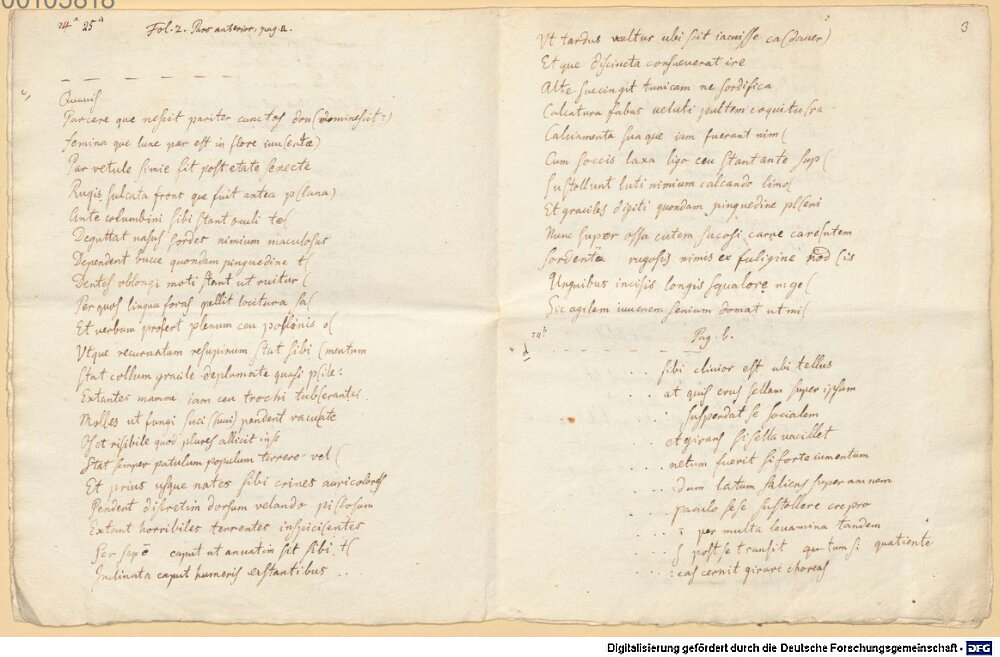 00105818
24a 25a Fol. 2. Pars anterior, pag. a.
Quamvis
Parcere que nescit pariter cunctos
femina que lune par est in flore iuuente)
Par vetule simie fit post etate senecte
Rugis sulcata frons que fuit antea p(lara)
Ante columbini sibi stant oculi te(
Deguttat nasus sordet nimium maculosus
Dependent bucce quondam pinguedine t(
Dentes oblongi moti stant ut ruitur (
Per quos lingua foras pellit locitura fa(
Et verbum profert plenum ceu pollinis o(
Utque recuruatum resupinum stat sibi (mentum
Stat collum gracile deplumate quasi p(ice:
Extantes mamme iam ceu trochi tuberantes
Molles ut fungi suci (succi) pendent vacuate
Os et risibile quod plures allicit in se
Stat semper patulum populum terrere vel (
Et prius usque nates sibi crines auricolores
Pendent discretim dorsum velando pi(
Extant horribiles terrentes inspicientes
Per sepe caput ut anuatim sit sibi t(
Inclinata caput humeris exstantibus ..
3
Ut tardus vultur ubi scit iacuisse ca(dauer)
Et que discincta consueuerat ire
Alte succingit tunicam ne sordifica
Calcatura fabas veluti pultem coquitura
Calciamenta suaque iam fuerant nim(
Cum soccis laxa ligo ceu stant ante sup(
Sustollunt luti nimium calcando limo(
Et graciles digiti quondam pinguedine pleni
Nunc super ossa cutem sucosi carne carentem
Sordente rugosis nimis ex fuligine nod(is
Unguibus incisis longis squalore nige(
Sic agilem iuuenem senium domat ut mi(
24b
Pag. b.
... sibi clivior est ubi tellus
... at quis erus sellam super ipsam
... suspendat se socialem
... et girans si sella vacillet
.... netum fuerit si forte iumentum
... dum latum saliens super amnem
... paulo sese sustollere cropro
... per multa leuamina tandem
... post se transit quatiente
... eas cernit girare choreas
Digitalisierung gefördert durch die Deutsche Forschungsgemeinschaft - DFG